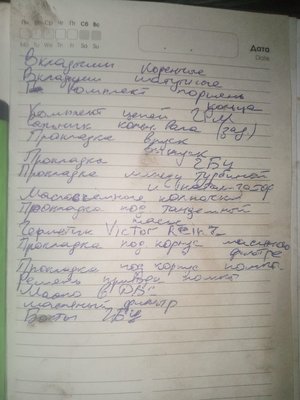 Пн Вт Ср Чт Пт Сб Вс
Mo Tu We Th Fr Sa Su
Дата
Date
Вкладыши коренные
Вкладыши шатунные
Комплект поршень
кольца
Комплект цепей ГРМ
Сальник колен. вала (зад)
Прокладка впуск
Прокладка ГБЦ
Прокладка между турбиной
и
Маслосъемные колпачки
Прокладка под
Герметик Victor Reinz
Прокладка под корпус масляного
фильтра
Прокладка под корпус
Ремень привода
Масло в ДВС
масляный фильтр
Болты ГБЦ